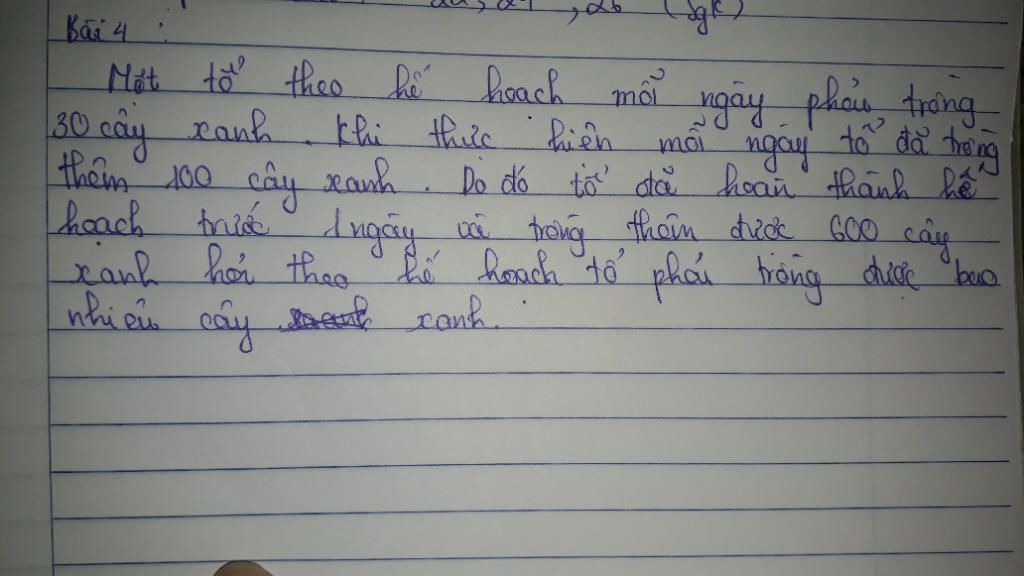 26 (Sgk)
Bài 4 :
Một tổ theo kế hoạch mỗi ngày phải trồng
30 cây xanh. Khi thực hiện mỗi ngày tổ đã trồng
thêm 100 cây xanh. Do đó tổ đã hoàn thành kế
hoạch trước 1 ngày và trồng thêm được 600 cây
xanh hỏi theo kế hoạch tổ phải trồng được bao
nhiêu cây xanh.